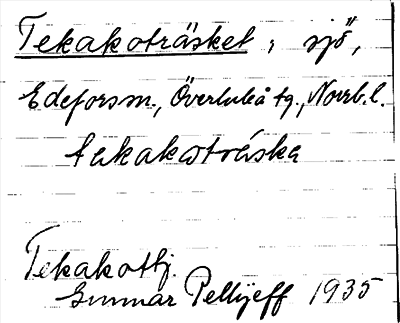 Tekakoträsket, sjö,
Edeforsm., Överluleå tg., Norrb. l.
takakoträska
Tekakotbj.
Gunnar Pellijeff 1935